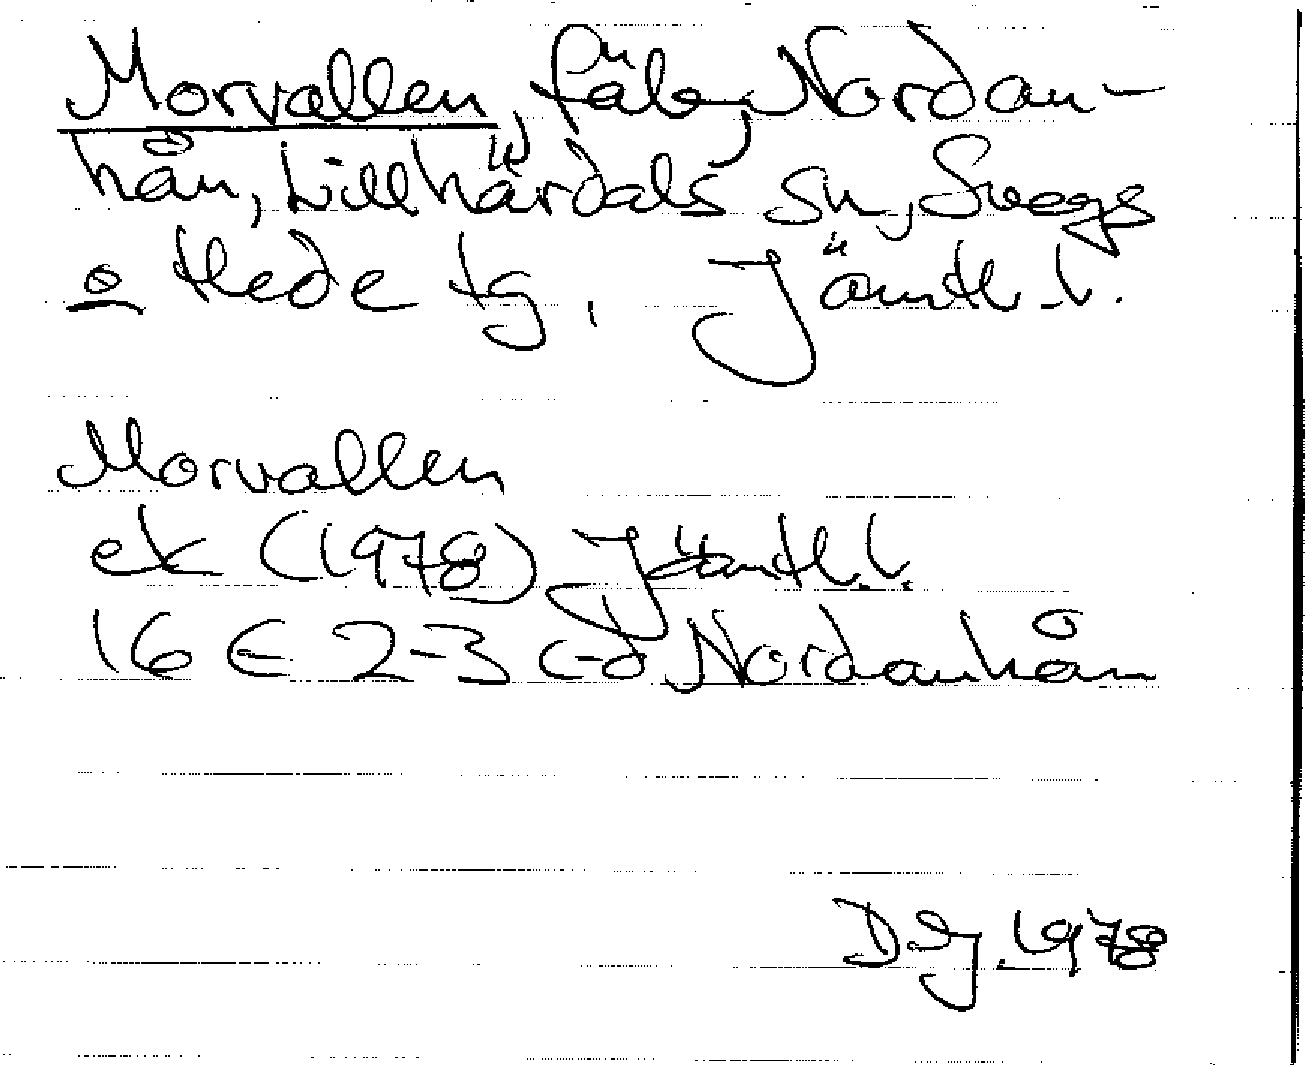 Morvallen, fäb, Nordan-
hån, Lillhärdals sn, Svegs
o Hede tg, Jämtl. l.
Morvallen
ek (1978) Jämtl. l.
16 E 2-3 c-d Nordanhån
1978